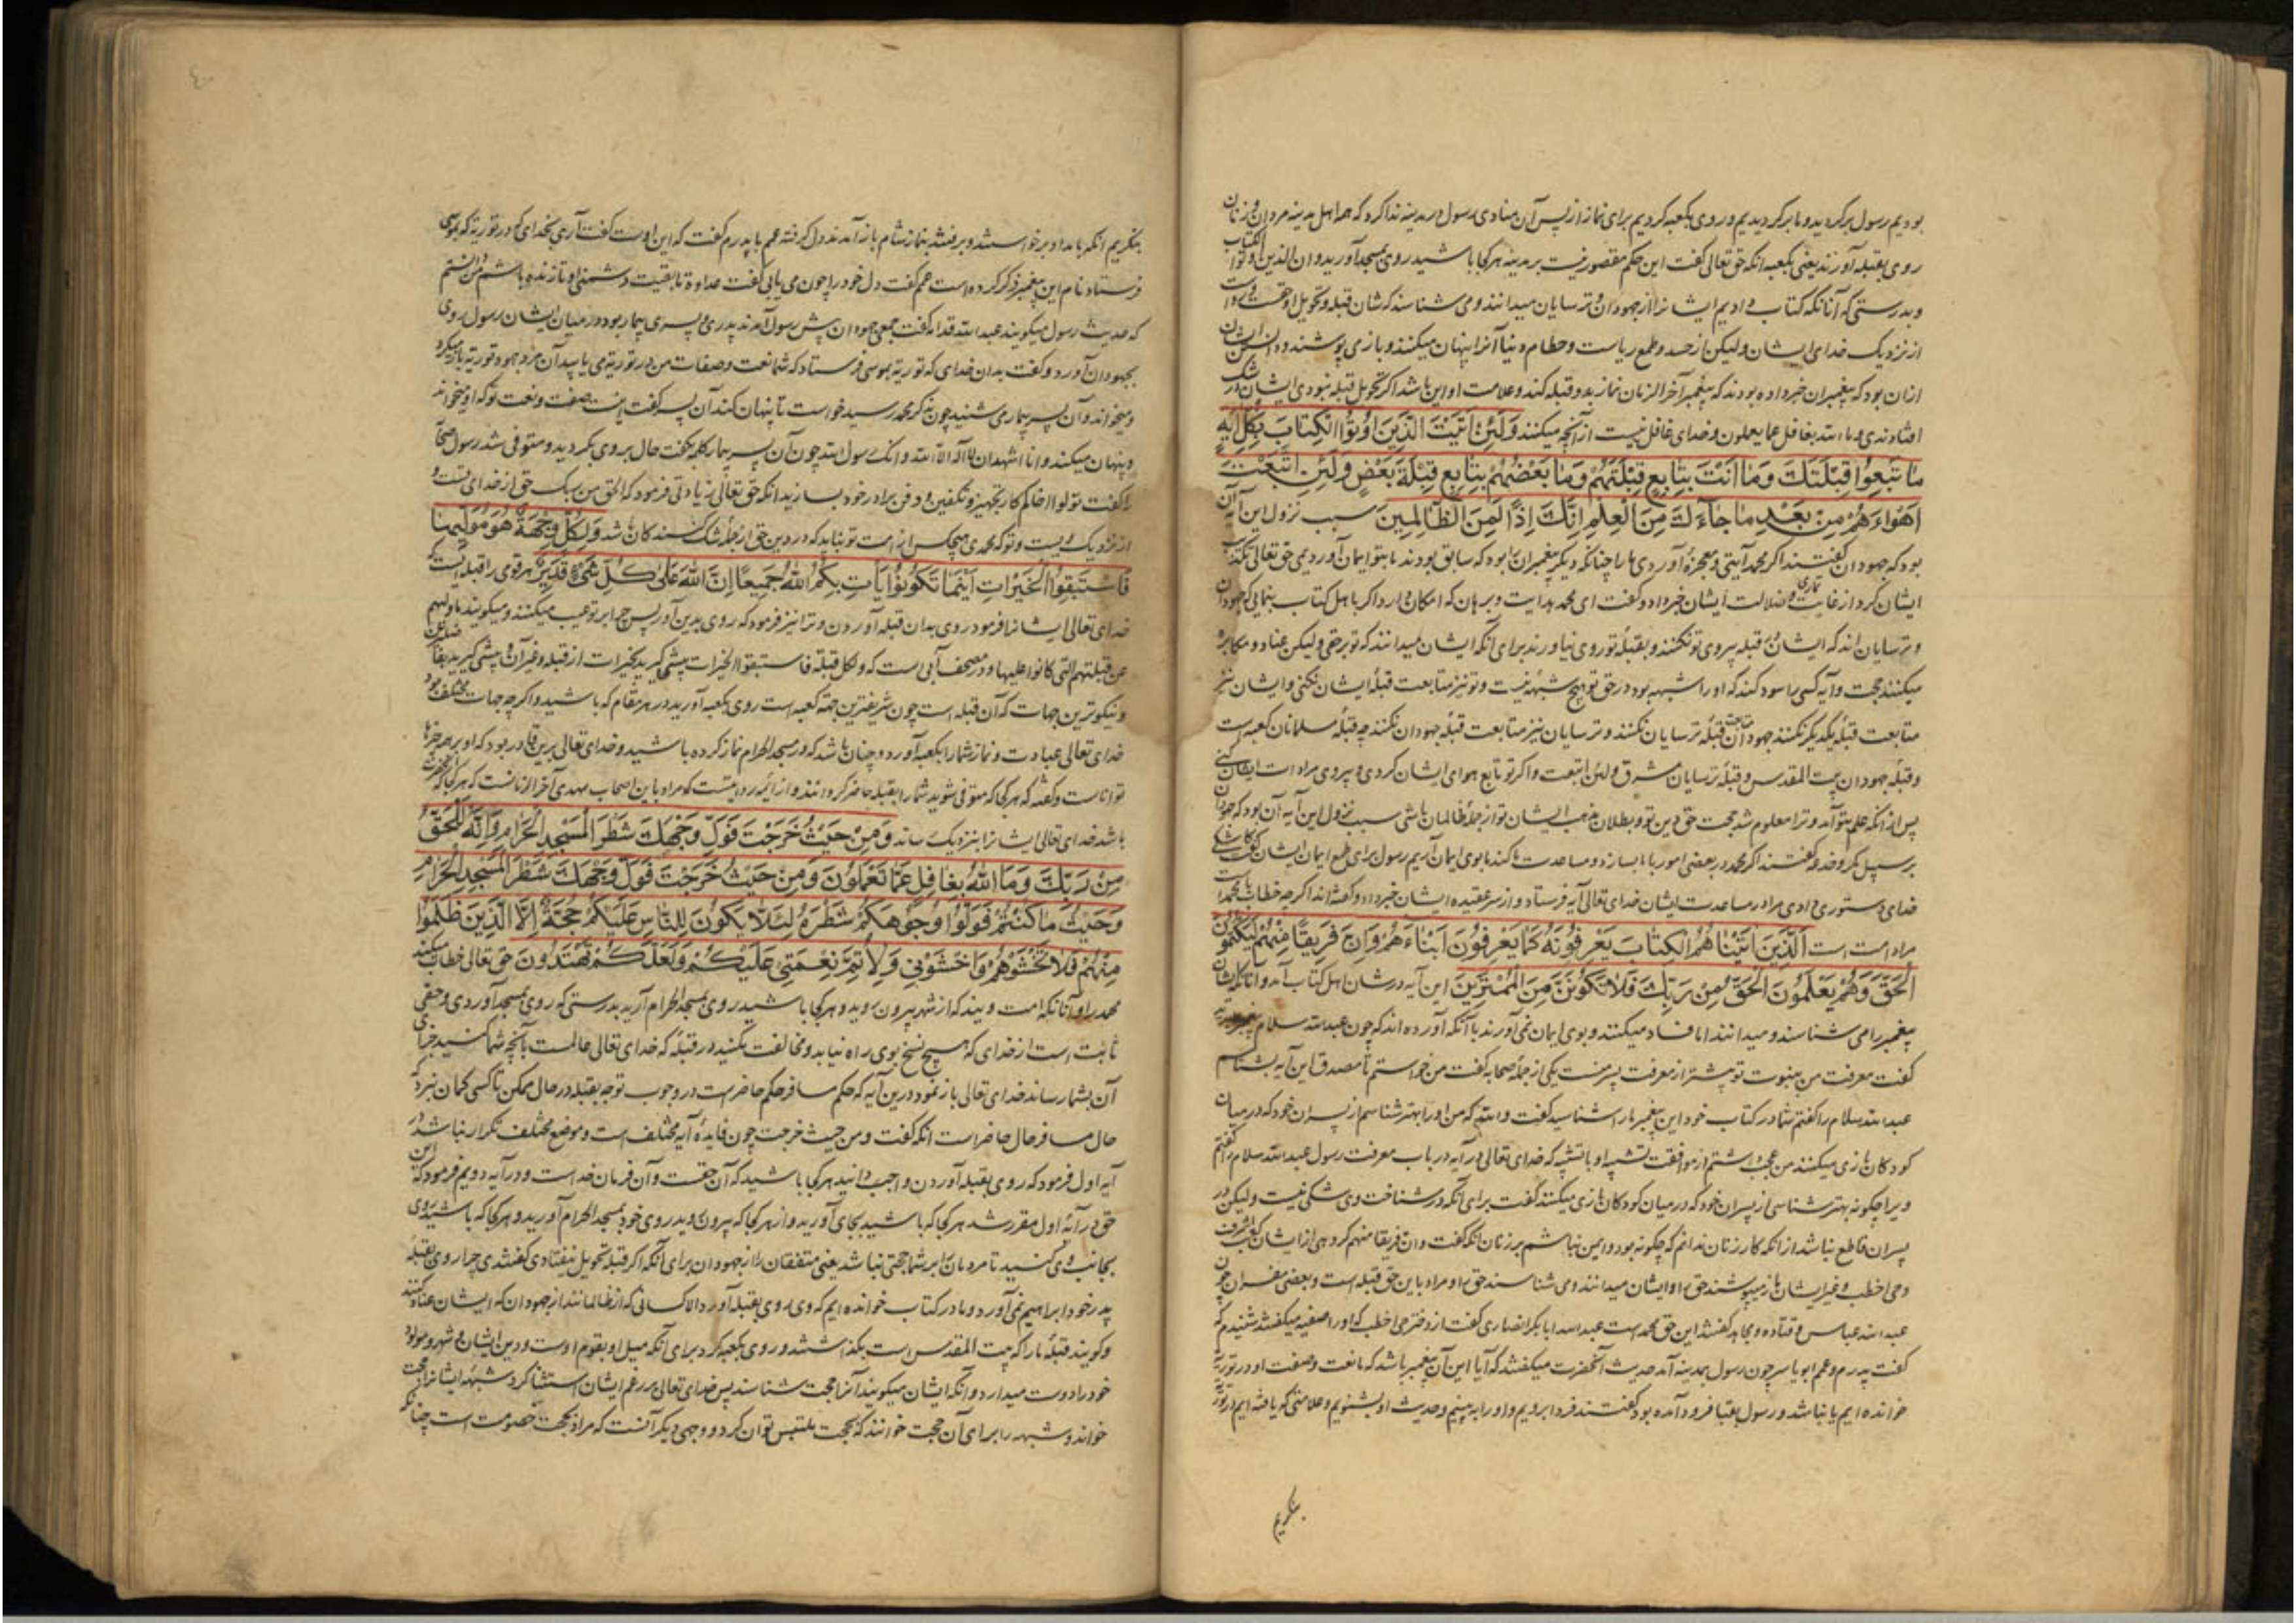 بودیم رسول برگردید و ما برگردیدیم و روی بکعبه کردیم برای نماز از پس آن منادی رسول در مدینه ندا کرد که همه اهل مدینه مردان و زنان
روی بقبله آورند یعنی بکعبه انکه حق تعالی گفت این حکم مقصور نیست بر مدینه هر کجا باشید روی بمسجد آورید و ان الذین اوتوا الکتاب
و بدرستی که آنانکه کتاب دادیم ایشانرا از جهودان و ترسایان میدانند و می شناسند که شان قبله و تحویل او حقست
از نزدیک خدای ایشان ولیکن از حسد و طمع ریاست و حطام دنیا آنرا پنهان میکنند و باز می پوشند
ازان بود که پیغمبران خبر داده بودند که پیغمبر آخر الزمان نماز بدو قبله کند و علامت او این باشد اگر تحویل قبله نبودی ایشان در شک
افتادندی و ما الله بغافل عما یعملون و خدای غافل نیست از آنچه میکنند وَلَئِنْ اَتَیْتَ الَّذینَ اُوتُوا الْکِتابَ بِکُلِّ ایَةٍ
ما تَبِعُوا قِبْلَتَکَ وَمَا اَنْتَ بِتابِعٍ قِبْلَتَهُمْ وَمَا بَعْضُهُمْ بِتابِعٍ قِبْلَةَ بَعْضٍ وَلَئِنِ اتَّبَعْتَ
اَهْواءَهُمْ مِنْ بَعْدِ ما جاءَکَ مِنَ الْعِلْمِ اِنَّکَ اِذًا لَمِنَ الظّالِمینَ سبب نزول این آیه آن
بود که جهودان گفتند اگر محمد آیتی و معجزهٔ آوردی ما را چنانکه دیگر پیغمبران را بود که سابق بودند ما بتو ایمان آوردیمی حق تعالی
ایشان کرد از غایت ضلالت ایشان خبر داد و گفت ای محمد هدایت و برهان که امکان دارد اگر با اهل کتاب بنمایی که جهودان
و ترسایان اند که ایشان قبله پیروی تو نکنند و بقبلهٔ تو روی نیاورند برای آنکه ایشان میدانند که تو برحقی ولیکن عناد و مکابره
میکنند حجت و آیه کسی را سود کند که او را شبهه بود در حق تو هیچ شبهه نیست و تو نیز متابعت قبلهٔ ایشان نکنی و ایشان نیز
متابعت قبلهٔ یکدیگر نکنند جهودان قبلهٔ ترسایان نکنند و ترسایان نیز متابعت قبلهٔ جهودان نکنند چه قبلهٔ مسلمانان کعبه است
و قبلهٔ جهودان بیت المقدس و قبلهٔ ترسایان مشرق ولئن اتبعت و اگر تو تابع هوای ایشان کردی و پیروی مرادات ایشان کنی
پس از انکه علم بتو آمد و ترا معلوم شد حجت حق دین تو و بطلان مذهب ایشان تو از جملهٔ ظالمان باشی سبب نزول این آیه آن بود که جهودان
بر سبیل مکر و خدعه گفتند اگر محمد در بعضی امور با ما بسازد و مساعدت ما کند ما بوی ایمان آریم رسول برای طمع ایمان ایشان
خدای دستوری دادی مرا در مساعدت ایشان خدای تعالی آیه فرستاد و از سر عقیده ایشان خبر داد و گفته اند اگر چه خطاب با محمد است
مراد امت است اَلَّذینَ اتَیْناهُمُ الْکِتابَ یَعْرِفُونَهُ کَما یَعْرِفُونَ اَبْناءَهُمْ وَاِنَّ فَریقًا مِنْهُمْ لَیَکْتُمُونَ
الْحَقَّ وَهُمْ یَعْلَمُونَ اَلْحَقُّ مِنْ رَبِّکَ فَلا تَکُونَنَّ مِنَ الْمُمْتَرینَ این آیه در شان اهل کتاب آمد و آنانکه ایشان
پیغمبر را می شناسند و میدانند اما فساد میکنند و بوی ایمان نمی آورند با آنکه آورده اند که چون عبدالله سلام
گفت معرفت من بنبوت تو پیشتر از معرفت پسر منست یکی از جملهٔ صحابه گفت من خواستم تا مصدق این آیه بشناسم
عبدالله سلام را گفتم شما در کتاب خود این پیغمبر را شناسید گفت والله که من او را بهتر شناسم از پسران خود که در میان
کودکان بازی میکنند من عجب داشتم از موافقت تشبیه او با تشبیه که خدای تعالی در آیه در باب معرفت رسول عبدالله سلام را گفتم
ویرا چگونه بهتر شناسی از پسران خود که در میان کودکان بازی میکنند گفت برای آنکه در شناخت وی شکی نیست ولیکن در
پسران قاطع نباشد از انکه کار زنان ندانم که چگونه بود و ایمن نباشم بر زنان انکه گفت وان فریقا منهم کروهی از ایشان
و حی اخطب و غیر ایشان باز میپوشند حق او ایشان میدانند و می شناسند حق او مراد باین حق قبله است و بعضی مفسران چون
عبدالله عباس و قتاده و مجاهد گفتند این حق محمد است عبدالله ابابکر انصاری گفت از دختر حی اخطب که او را صفیه میگفتند شنیدم که
گفت پدرم و عمم ابو یاسر چون رسول بمدینه آمد حدیث آنحضرت میگفتند که آیا این آن پیغمبر باشد که ما نعت و صفت او در توریة
خوانده ایم یا نباشد و رسول بقبا فرود آمده بود گفتند فردا برویم و او را ببینیم و حدیث او بشنویم و علامتی که یافته ایم در توریة
بنگریم
بنگریم انکه بامداد برخواستند و برفتند نماز شام باز آمدند دل کرفته عمم با پدرم گفت که این اوست گفت آری بخدای که در توریة که بموسی
فرستاد نام این پیغمبر ذکر کرده است عمم گفت دل خود را چون می یابی گفت عداوة تا بقیت دشمنی او تا زنده باشم من دانستم
که حدیث رسول میگویند عبدالله قداده گفت جمعی جهودان پیش رسول آمدند پدری و پسری بیمار بود در میان ایشان رسول روی
بجهودان آورد و گفت بدان خدای که توریة بموسی فرستاد که شما نعت و صفات من در توریة می یابید آن مرد جهود توریة باز میکرد
و میخواند و آن پسر بیمار می شنید چون بذکر محمد رسید خواست تا پنهان کند آن پسر گفت اینست صفت و نعت تو که او میخواند
و پنهان میکند و انا اشهد ان لا اله الا الله و انک رسول الله چون آن پسر بیمار کلمه بگفت حال بر وی بگردید و متوفی شد رسول صحابه
را گفت تولوا اخاکم کار تجهیز و تکفین و دفن برادر خود بسازید انکه حق تعالی زیادتی فرمود که الحق من ربک حق از خدای تست و
از نزدیک ویست و تو که محمدی و هیچکس از امت تو نباید که در دین حق از جملهٔ شک کنندکان باشد وَلِکُلٍّ وِجْهَةٌ هُوَ مُوَلّیها
فَاسْتَبِقُوا الْخَیْراتِ اَیْنَما تَکُونُوا یَأْتِ بِکُمُ اللّٰهُ جَمیعًا اِنَّ اللّٰهَ عَلٰی کُلِّ شَیْءٍ قَدیرٌ هر قومی را قبله ایست که
خدای تعالی ایشانرا فرمود روی بدان قبله آوردن و ترا نیز فرمود که روی بدین آور پس چرا بر تو عیب میکنند و میگویند ما ولیهم
عن قبلتهم التی کانوا علیها و در مصحف ابی است که ولکل قبلة فاستبقوا الخیرات پیشی گیرید بخیرات از قبله و غیر آن و پیشی گیرید
و نیکوترین جهات که آن قبله است چون شریفترین جهة کعبه است روی بکعبه آورید در هر مقام که باشید و اگر چه جهات مختلف بود
خدای تعالی عبادت و نماز شما را بکعبه آورد و چنان باشد که در مسجد الحرام نماز کرده باشید و خدای تعالی برین قادر بود که او بر همه چیزها
تواناست و گفته که هر کجا که متوفی شوید شما را بقبله حاضر گردانند و از ائمه روایتست که مراد باین اصحاب مهدی آخر الزمانست که هر کجا که
باشد خدای تعالی ایشانرا بنزدیک رساند وَمِنْ حَیْثُ خَرَجْتَ فَوَلِّ وَجْهَکَ شَطْرَ الْمَسْجِدِ الْحَرامِ وَاِنَّهُ لَلْحَقُّ
مِنْ رَبِّکَ وَمَا اللّٰهُ بِغافِلٍ عَمّا تَعْمَلُونَ وَمِنْ حَیْثُ خَرَجْتَ فَوَلِّ وَجْهَکَ شَطْرَ الْمَسْجِدِ الْحَرامِ
وَحَیْثُ ما کُنْتُمْ فَوَلُّوا وُجُوهَکُمْ شَطْرَهُ لِئَلّا یَکُونَ لِلنّاسِ عَلَیْکُمْ حُجَّةٌ اِلَّا الَّذینَ ظَلَمُوا
مِنْهُمْ فَلا تَخْشَوْهُمْ وَاخْشَوْنی وَلِاُتِمَّ نِعْمَتی عَلَیْکُمْ وَلَعَلَّکُمْ تَهْتَدُونَ حق تعالی خطاب میکند
محمد را و آنانکه امت ویند که از شهر بیرون روید و هر کجا باشید روی بمسجد الحرام آرید بدرستی که روی بمسجد آوردی و حقی
ثابت است از خدای که هیچ نسخ بوی راه نیابد و مخالفت مکنید در قبله که خدای تعالی عالمست بآنچه شما کنید جزای
آن بشما رساند خدای تعالی باز نمود درین آیه که حکم مسافر حکم حاضر است در وجوب توجه بقبله در حال ممکن تا کسی گمان نبرد که
حال مسافر حال حاضر است انکه گفت و من حیث خرجت چون فایدهٔ آیه مختلف است و موضع مختلف تکرار نباشد در
آیه اول فرمود که روی بقبله آوردن واجب دانید هر کجا باشید که آن حقست و آن فرمان خداست و در آیه دویم فرمود که این
حق در آیهٔ اول مقرر شد هر کجا که باشید بجای آورید و از هر کجا که بیرون روید روی خود بمسجد الحرام آورید و هر کجا که باشید روی
بجانب وی کنید تا مردمان را بر شما حجتی نباشد یعنی متفقان را از جهودان برای آنکه اگر قبله تحویل نیفتادی گفتندی چرا روی بقبلهٔ
پدر خود ابراهیم نمی آورد و ما در کتاب خوانده ایم که وی روی بقبله آورد الا کسانی که از ظالمانند از جهودان که ایشان عناد کنند
و گویند قبلهٔ ما را که بیت المقدس است بگذاشتند و روی بکعبه کرد برای آنکه میل او بقوم اوست و دین ایشان و شهر و مولود
خود را دوست میدارد و آنکه ایشان میگویند آنرا حجت شناسند پس خدای تعالی بر زعم ایشان استثنا کرد شبهه ایشانرا حجت
خواند و شبهه را برای آن حجت خوانند که بحجت ملتبس توان کرد و وجهی دیگر آنست که مراد بحجت خصومت است چنانکه